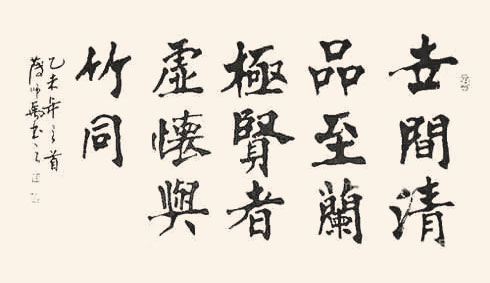 世間清
品至蘭
極賢者
虛懷與
竹同
乙未年之首